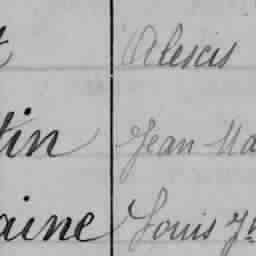 t Alescis
tin Jean Ma
aine Louis Je